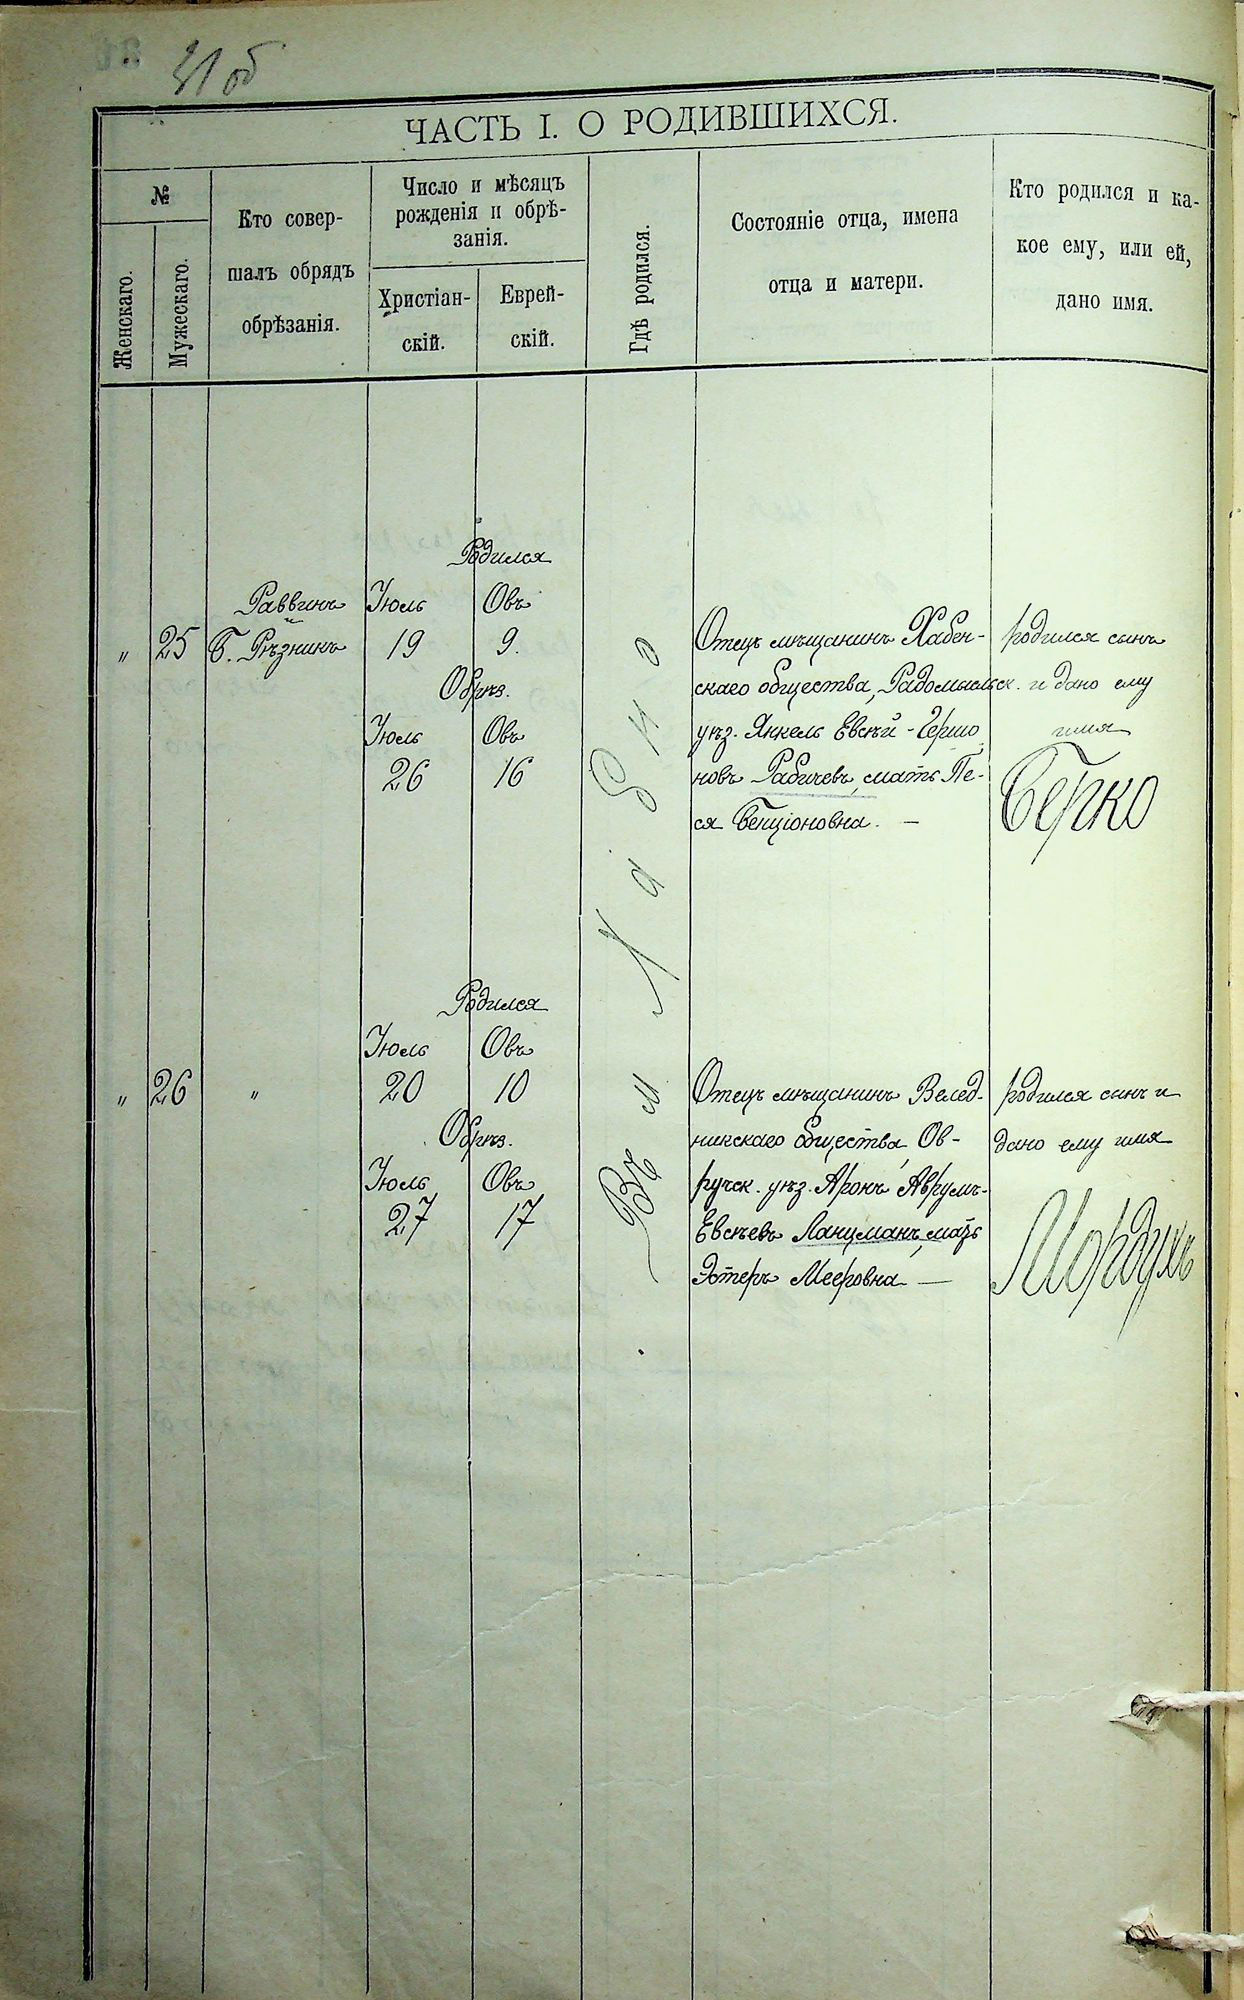 31 об
ЧАСТЬ I. О РОДИВШИХСЯ.
№
Женскаго.
Мужескаго.
Кто совер-
шалъ обрядъ
обрѣзанія.
Число и мѣсяцъ
рожденія и обрѣ-
занія.
Христіан-
скій.
Еврей-
скій.
Гдѣ родился.
Состояніе отца, имена
отца и матери.
Кто родился и ка-
кое ему, или ей,
дано имя.
Родился
Раввинъ Іюль Овъ
" 25 Б. Рѣзникъ 19 9.
Обрѣз.
Іюль Овъ
26 16
Отецъ мѣщанинъ Хабен-
скаго общества, Радомысльск.
уѣз. Янкель Евсѣй-Гершо
новъ Рабичевъ, мать Пе-
ся Бенціоновна. —
родился сынъ
и дано ему
имя
Берко
Въ м.
Родился
Іюль Овъ
" 26 " 20 10
Обрѣз.
Іюль Овъ
27 17
Отецъ мѣщанинъ Велед-
никскаго общества, Ов-
ручск. уѣз. Аронъ Аврумъ-
Евсѣевъ Ланцманъ, мать
Эстеръ Мееровна —
родился сынъ и
дано ему имя
Мордухъ